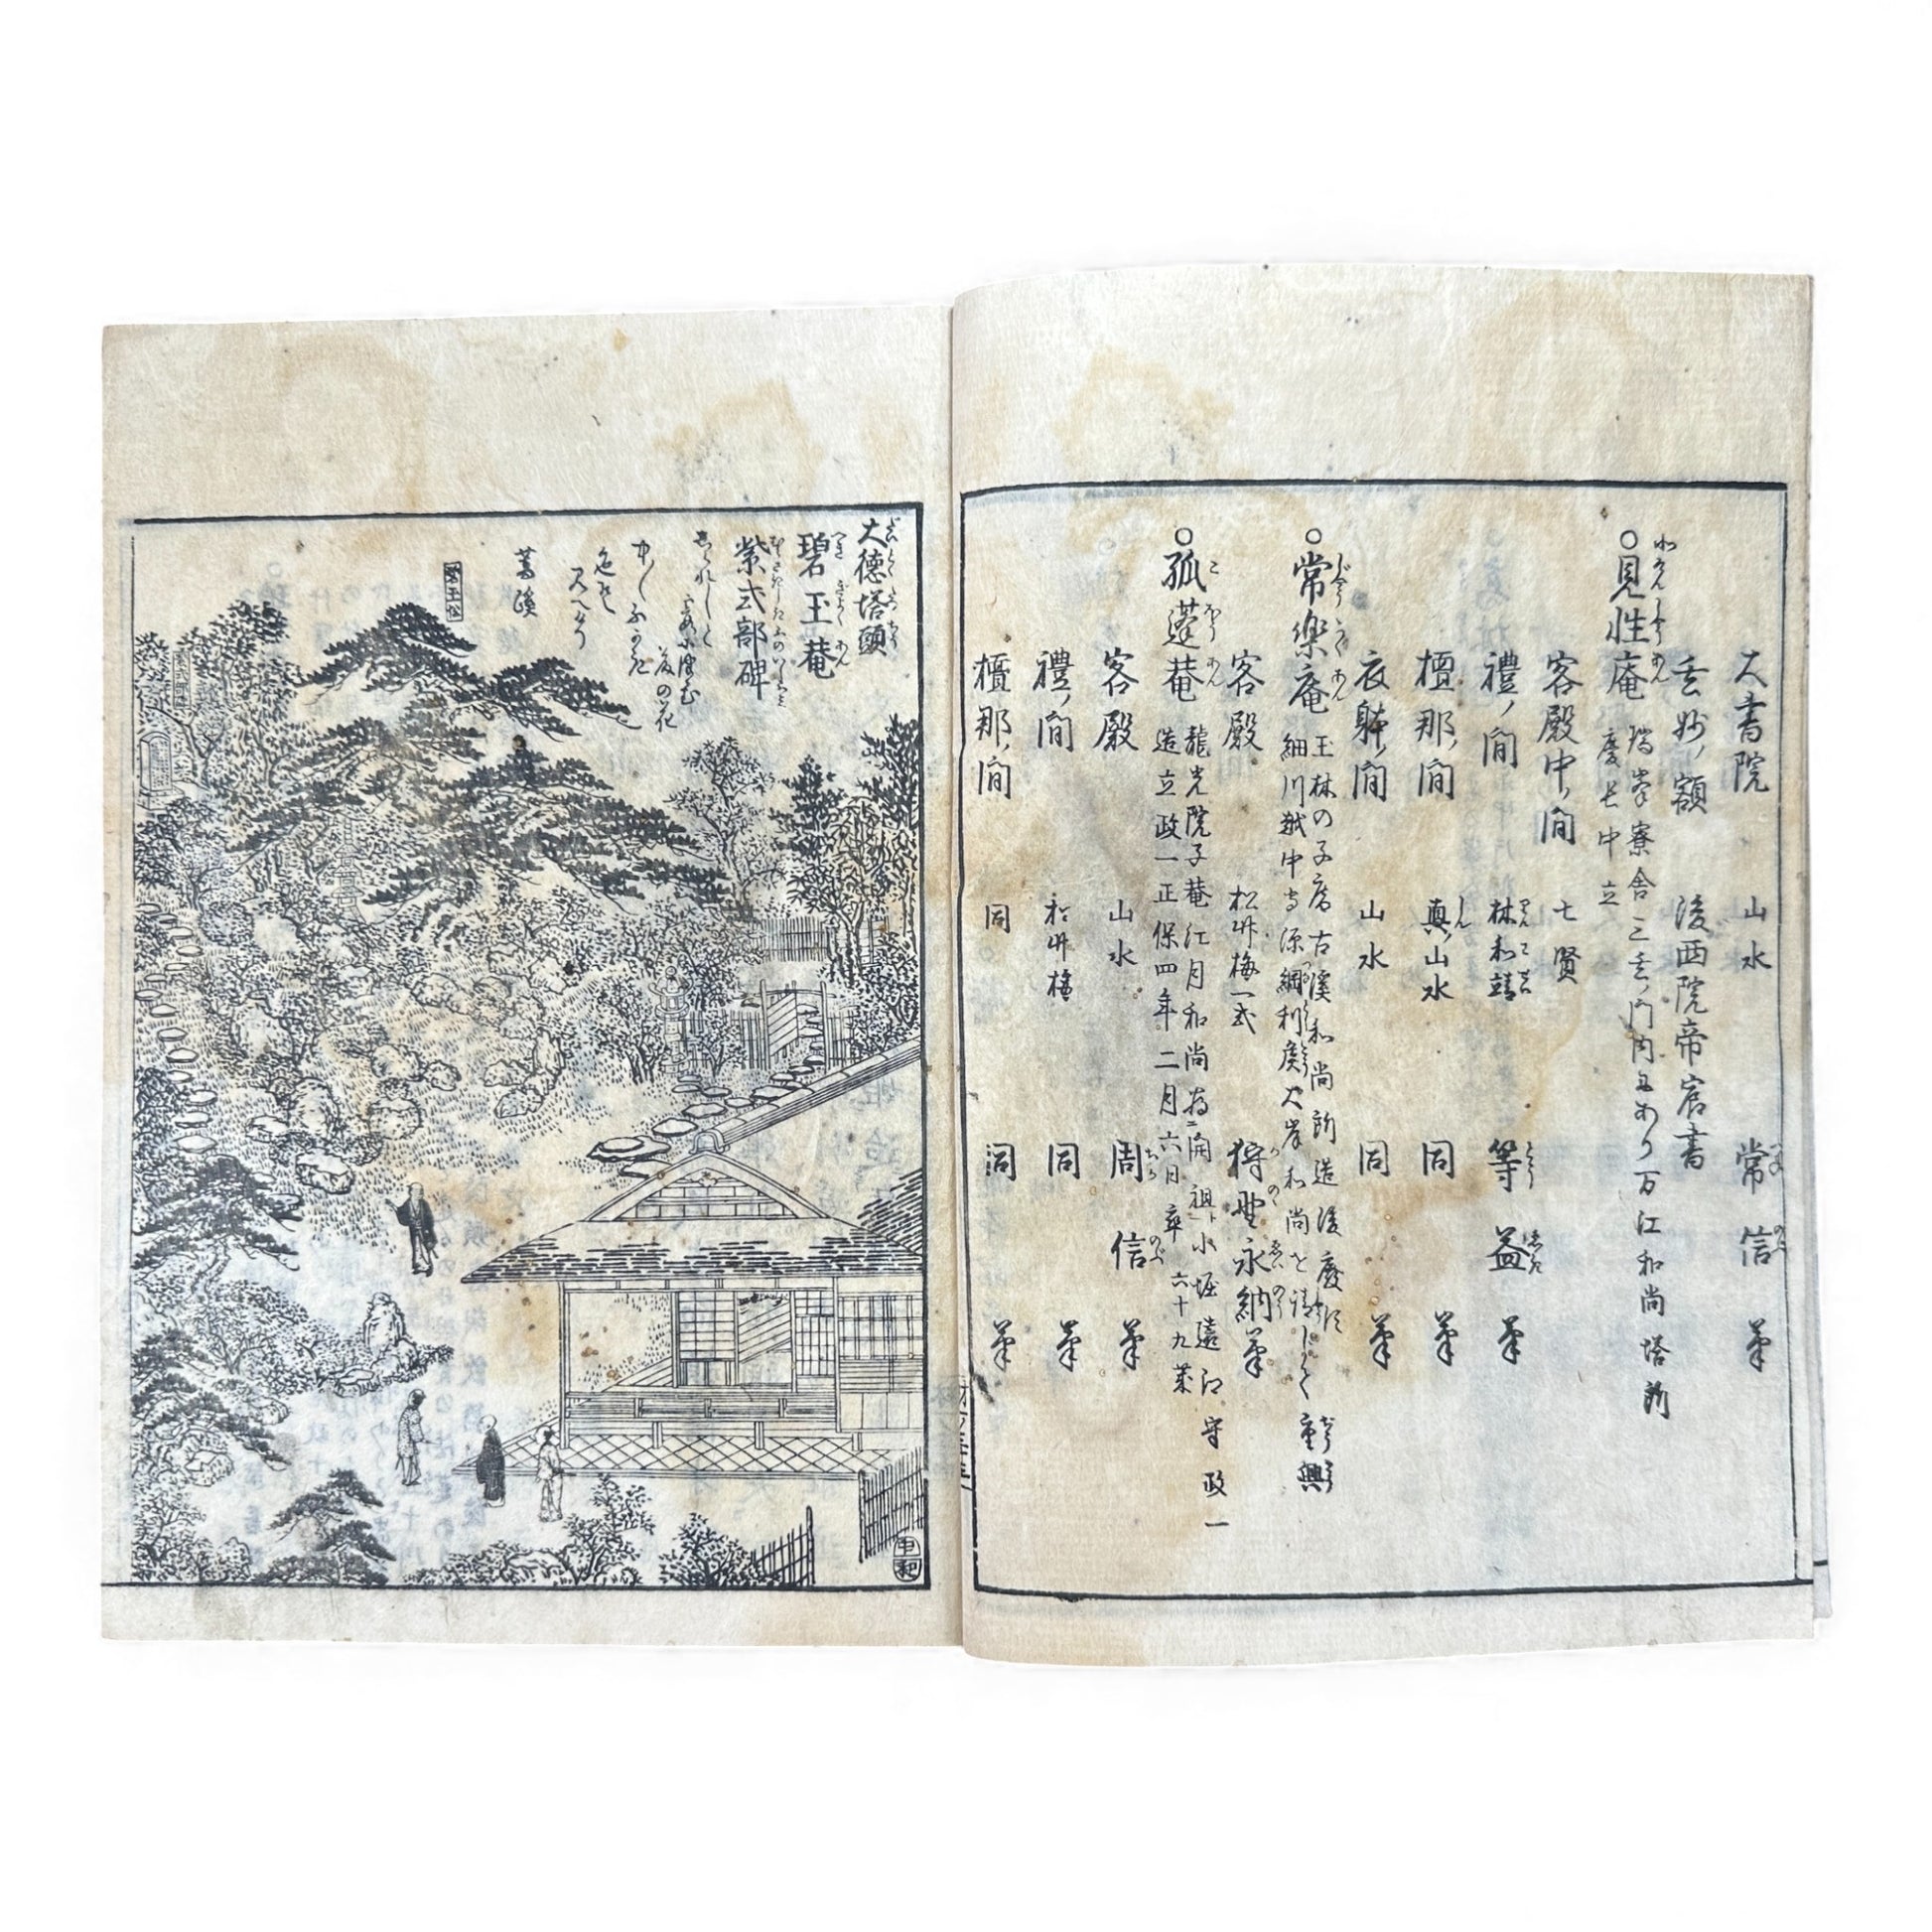 大書院 山水 常信筆
玄妙ノ額 後西院帝宸書
○見性庵 瑞峯寮舎ニ玄ノ門内にあり万江和尚塔所
慶長中立
客殿中ノ間 七賢
禮ノ間 林和靖 等益筆
檀那ノ間 真ノ山水 同筆
衣躰ノ間 山水 同筆
○常楽庵 玉林の子房古溪和尚所造後慶
細川越中守源綱利矦大岸和尚を請じて重興
客殿 松竹梅一式 狩野永納筆
○孤蓬菴 龍光院子菴江月和尚為開祖小堀遠江守政一
造立政一正保四年二月六日卒六十九歳
客殿 山水 周信筆
禮ノ間 松竹梅 同筆
檀那ノ間 同 同筆
大徳塔頭
碧玉菴
紫式部碑
花の花
色を
見へけり
蒿蹊
中和